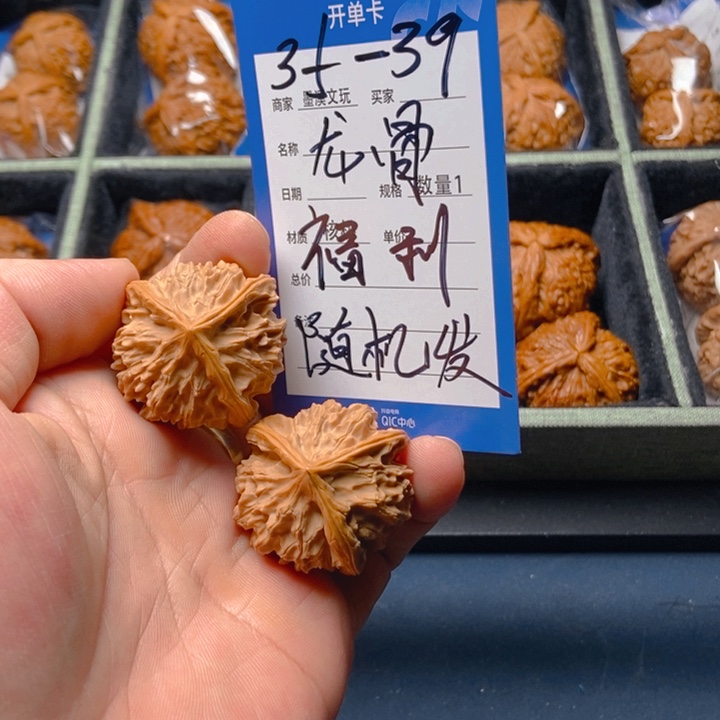 开单卡
-39
商家 文玩 买家
名称 龙骨
日期 规格 数量1
材质 单价
福利
总价
随机发
抖音电商
QIC中心